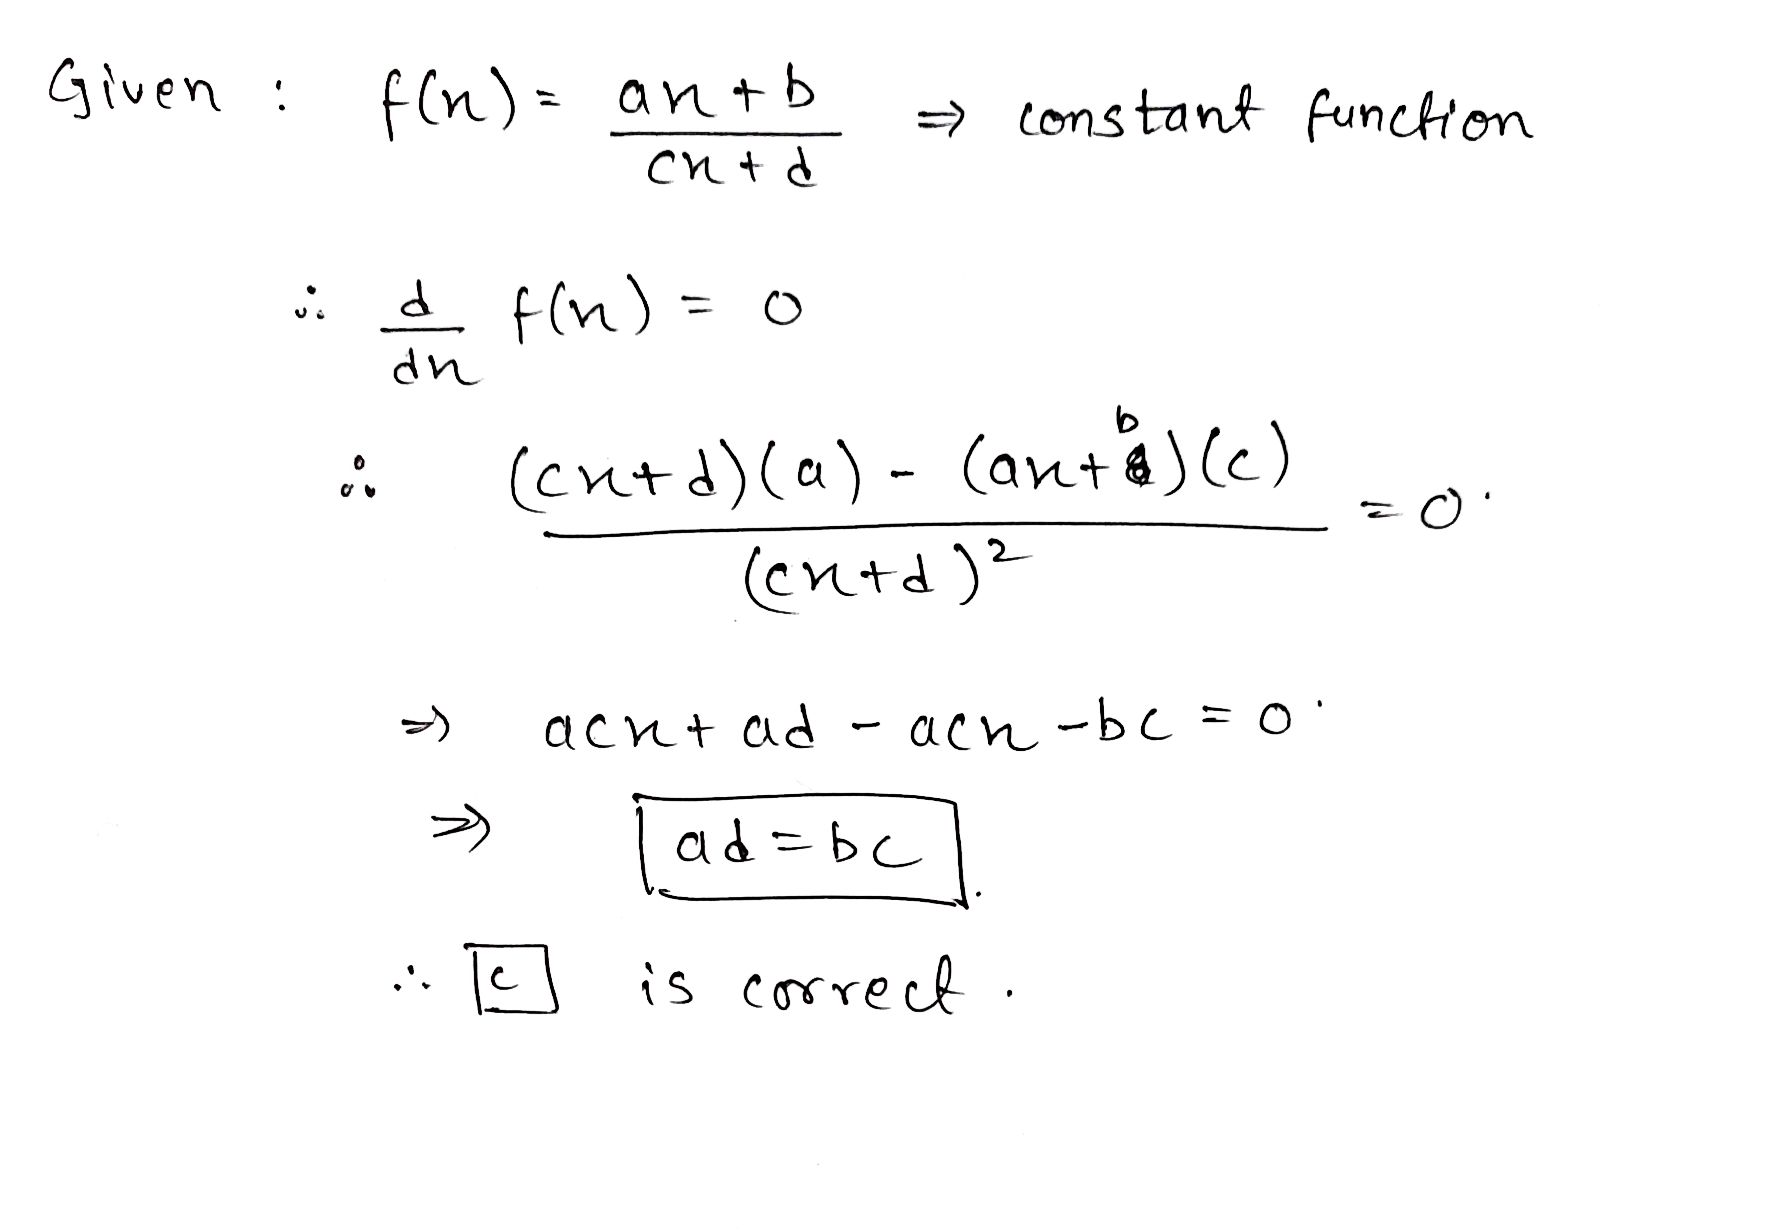 Given : f(x) = ax + b / cx + d ⇒ constant function
∴ d/dx f(x) = 0
∴ (cx+d)(a) - (ax+b)(c) / (cx+d)² = 0.
⇒ acx + ad - acx - bc = 0.
⇒ ad = bc.
∴ c is correct.